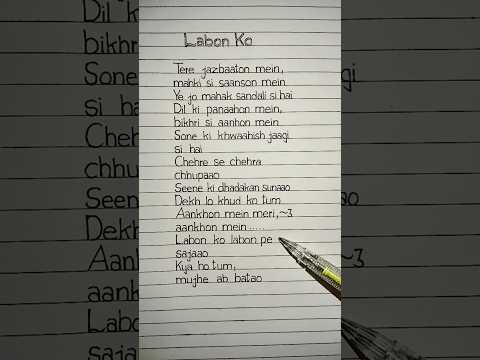 Labon Ko
Tere jazbaaton mein,
mahki si saanson mein
Ye jo mahak sandali si hai
Dil ki panaahon mein,
bikhri si aanhon mein
Sone ki khwaahish jaagi
si hai
Chehre se chehra
chhupaao
Seene ki dhadakan sunaao
Dekh lo khud ko tum
Aankhon mein meri,~3
aankhon mein.....
Labon ko labon pe
sajaao
Kya ho tum,
mujhe ab batao